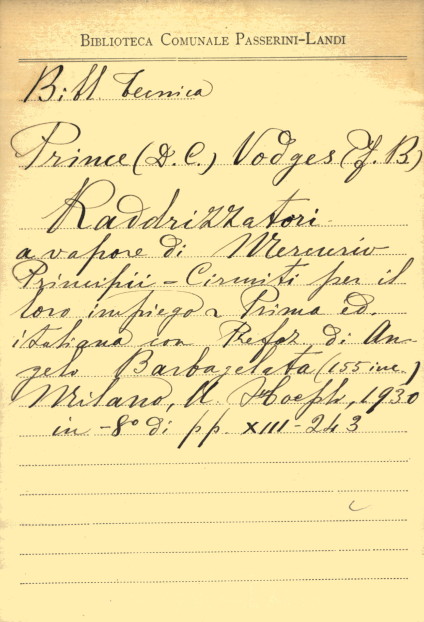 BIBLIOTECA COMUNALE PASSERINI-LANDI
Bibl. tecnica
Prince (D. C.) Vodges (F. B)
Raddrizzatori
a vapore di Mercurio
Principii - Circuiti per il
loro impiego - Prima ed.
italiana con Prefaz. di An-
gelo Barbagelata (155 inc.)
Milano, U. Hoepli, 1930
in -8° di pp. XIII-243